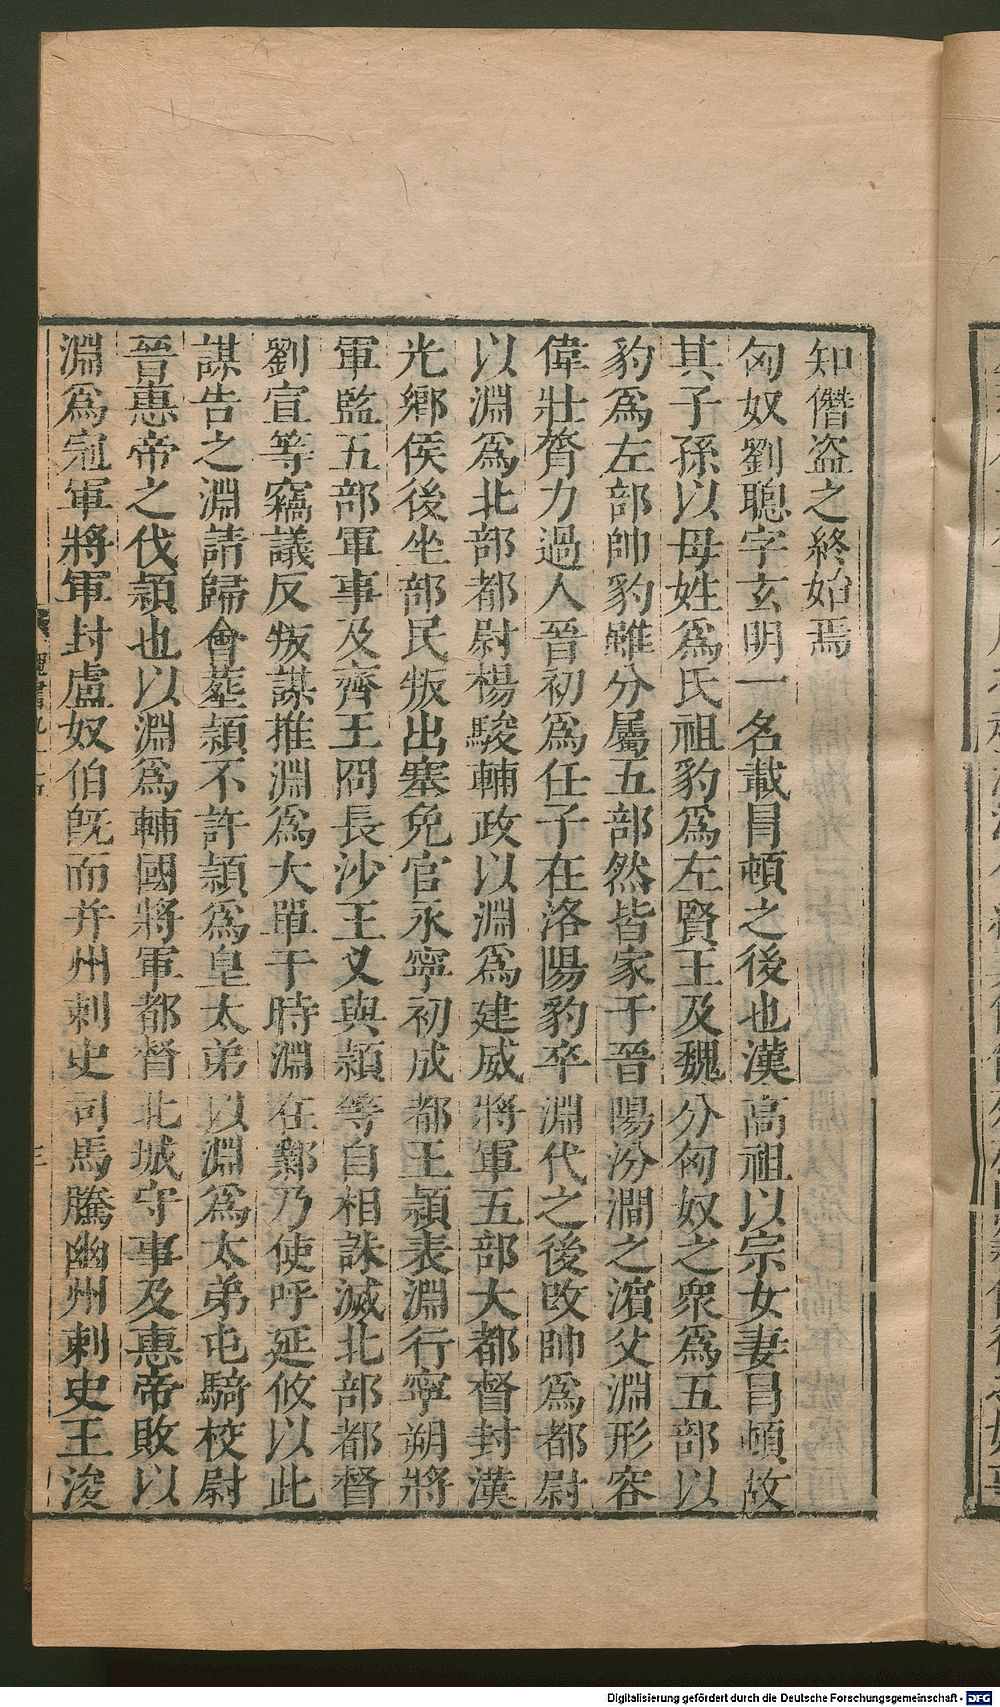 知僭盗之終始焉
匈奴劉聦字玄明一名載冒頓之後也漢高祖以宗女妻冒頓故
其子孫以母姓為氏祖豹為左賢王及魏分匈奴之衆為五部以
豹為左部帥豹雖分屬五部然皆家于晉陽汾澗之濵父淵形容
偉壯膂力過人晉初為任子在洛陽豹卒淵代之後改帥為都尉
以淵為北部都尉楊駿輔政以淵為建威將軍五部大都督封漢
光鄉侯後坐部民叛出塞免官永寧初成都王穎表淵行寧朔將
軍監五部軍事及齊王冏長沙王乂與穎等自相誅滅北部都督
劉宣等竊議反叛謀推淵為大單于時淵在鄴乃使呼延攸以此
謀告之淵請歸會葬穎不許穎為皇太弟以淵為太弟屯騎校尉
晉惠帝之伐穎也以淵為輔國將軍都督北城守事及惠帝敗以
淵為冠軍將軍封盧奴伯旣而并州刺史司馬騰幽州刺史王浚
Digitalisierung gefördert durch die Deutsche Forschungsgemeinschaft - DFG